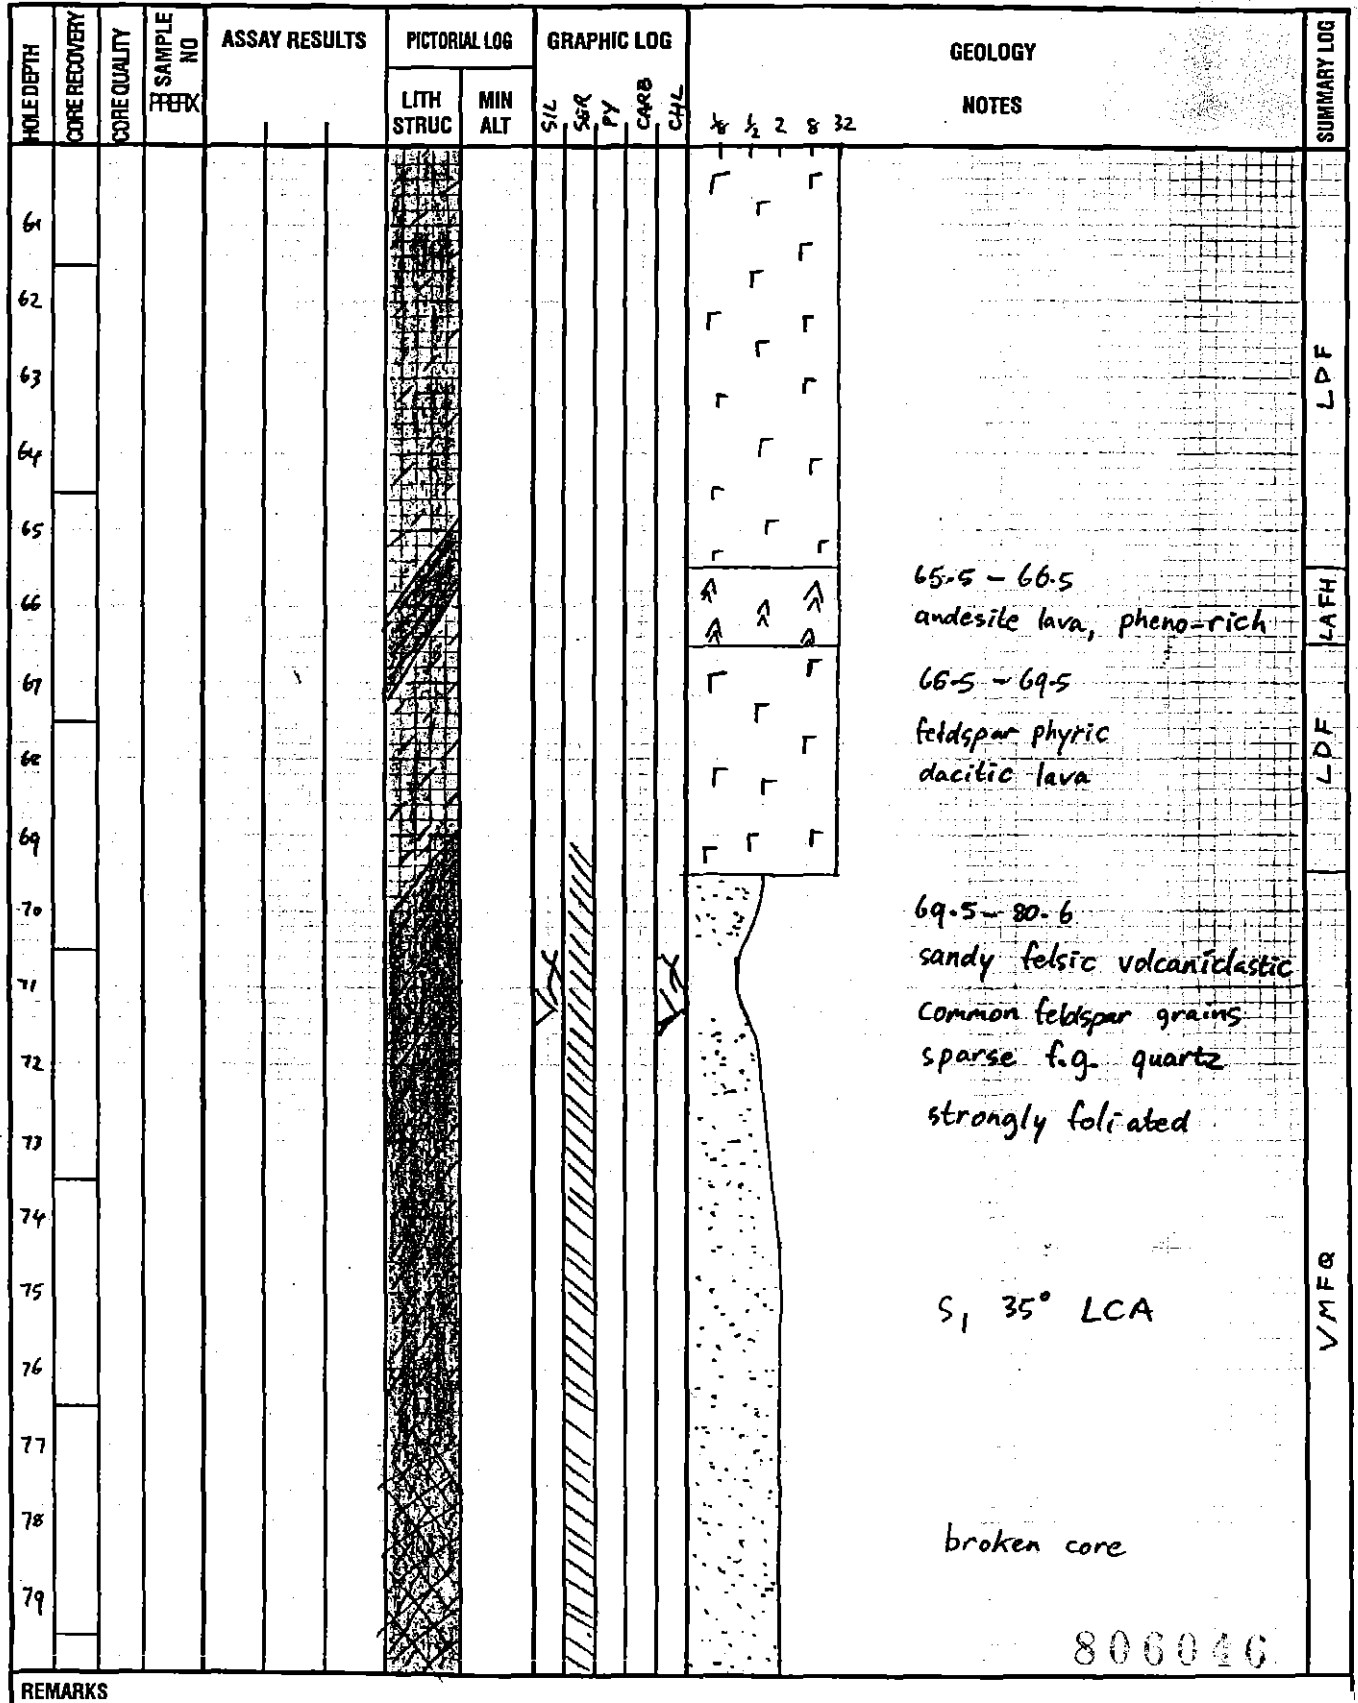 HOLE DEPTH
CORE RECOVERY
CORE QUALITY
SAMPLE NO
PREFIX
ASSAY RESULTS
PICTORIAL LOG
LITH STRUC
MIN ALT
GRAPHIC LOG
SIL
SER
PY
CARB
CHL
GEOLOGY
NOTES
1/8 1/2 2 8 32
SUMMARY LOG
61
62
63
64
65
66
67
68
69
70
71
72
73
74
75
76
77
78
79
LDF
65.5 - 66.5
andesite lava, pheno-rich
LAFH
66.5 - 69.5
feldspar phyric
dacitic lava
LDF
69.5 - 80.6
sandy felsic volcaniclastic
Common feldspar grains
sparse f.g. quartz
strongly foliated
S1 35° LCA
VMFQ
broken core
806046
REMARKS